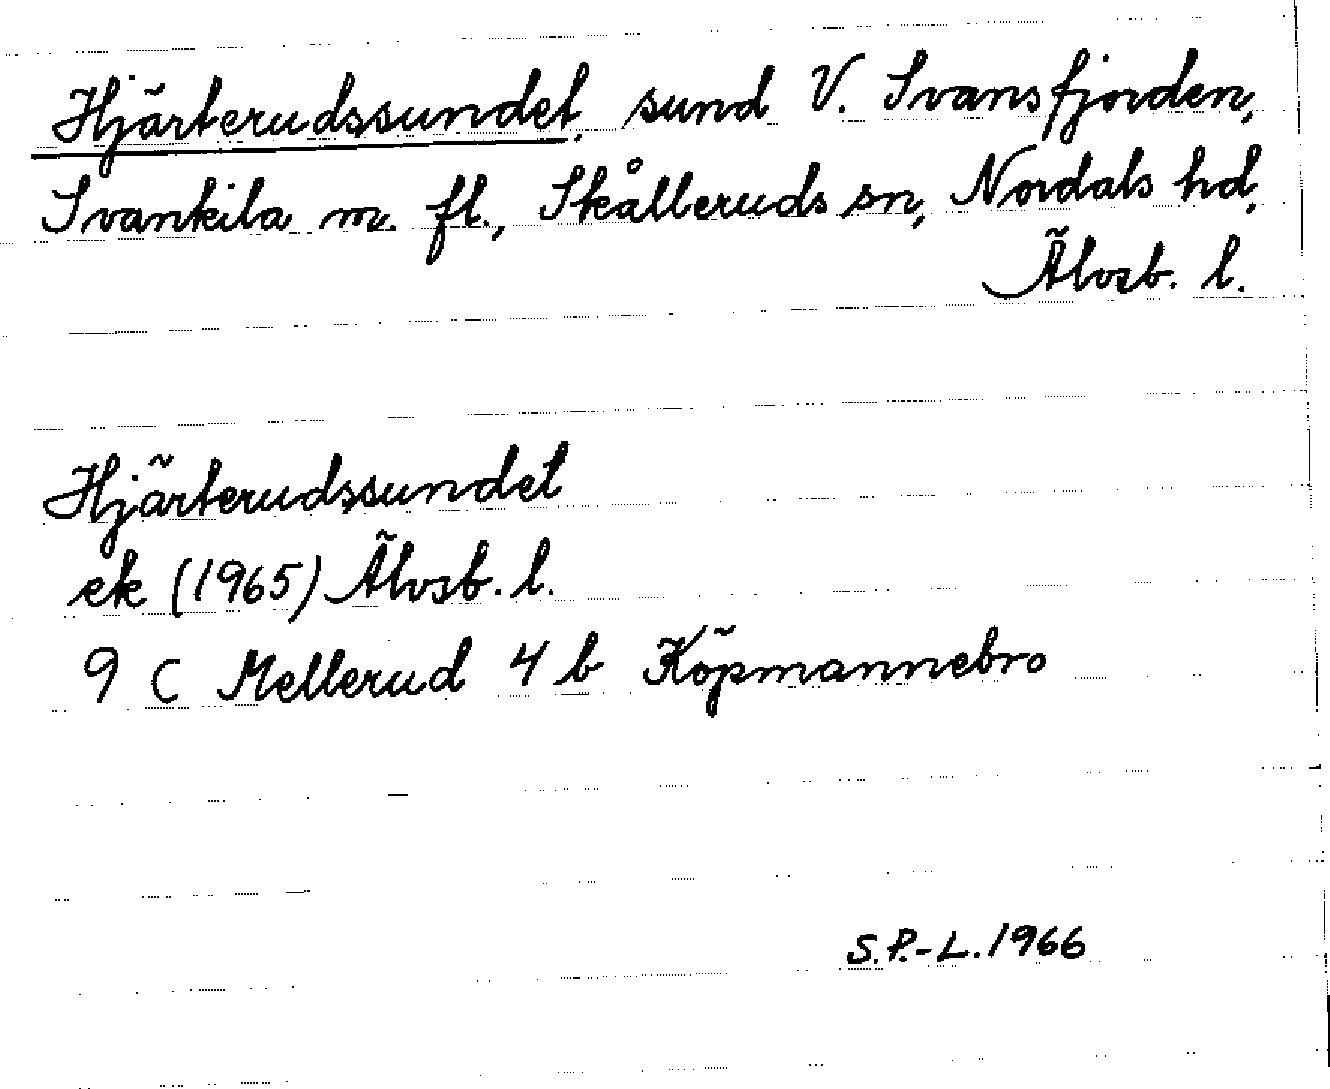 Hjärterudssundet, sund V. Svansfjorden,
Svankila m. fl., Skålleruds sn, Nordals hd,
Älvsb. l.
Hjärterudssundet
ek (1965) Älvsb. l.
9 C Mellerud 4 b Köpmannebro
S.P.-L. 1966